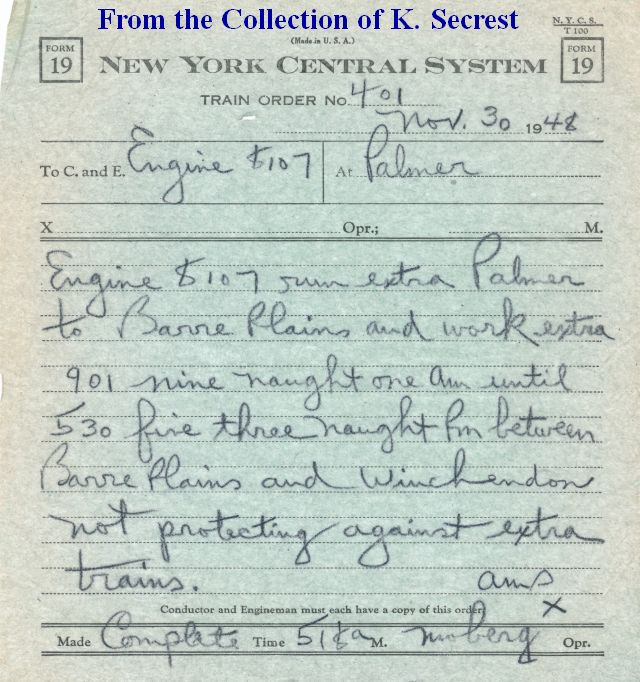 From the Collection of K. Secrest
N. Y. C. S.
T 100
(Made in U. S. A.)
FORM 19
NEW YORK CENTRAL SYSTEM
FORM 19
TRAIN ORDER No. 401
Nov. 30 1948
To C. and E. Engine 5107 At Palmer
X Opr.; M.
Engine 5107 run extra Palmer
to Barre Plains and work extra
901 nine naught one am until
530 five three naught Pm between
Barre Plains and Winchendon
not protecting against extra
trains. ams
Conductor and Engineman must each have a copy of this order
X
Made Complete Time 518 a M. Moberg Opr.